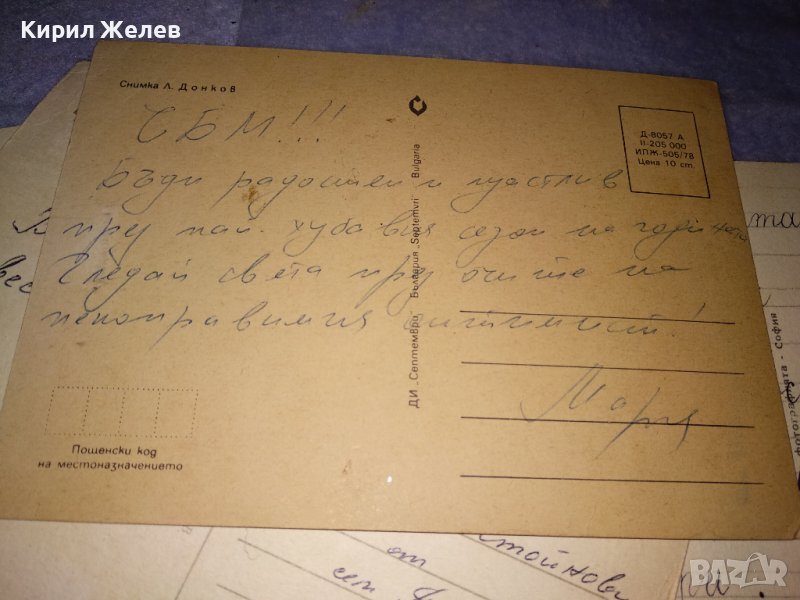 Кирил Желев
Снимка Л. Донков
СБМ!!!
Бъди радостен и щастлив
през най-хубавия сезон на годината
Гледай света през очите на
непоправимия оптимист!
Мария
Д-8057 А
II-205 000
ИПЖ-505/78
Цена 10 ст.
ДИ „Септември„ България „Septemvri„ Bolgaria
Пощенски код
на местоназначението
фотографията - София
вес
та
от
сем.
BAZAR